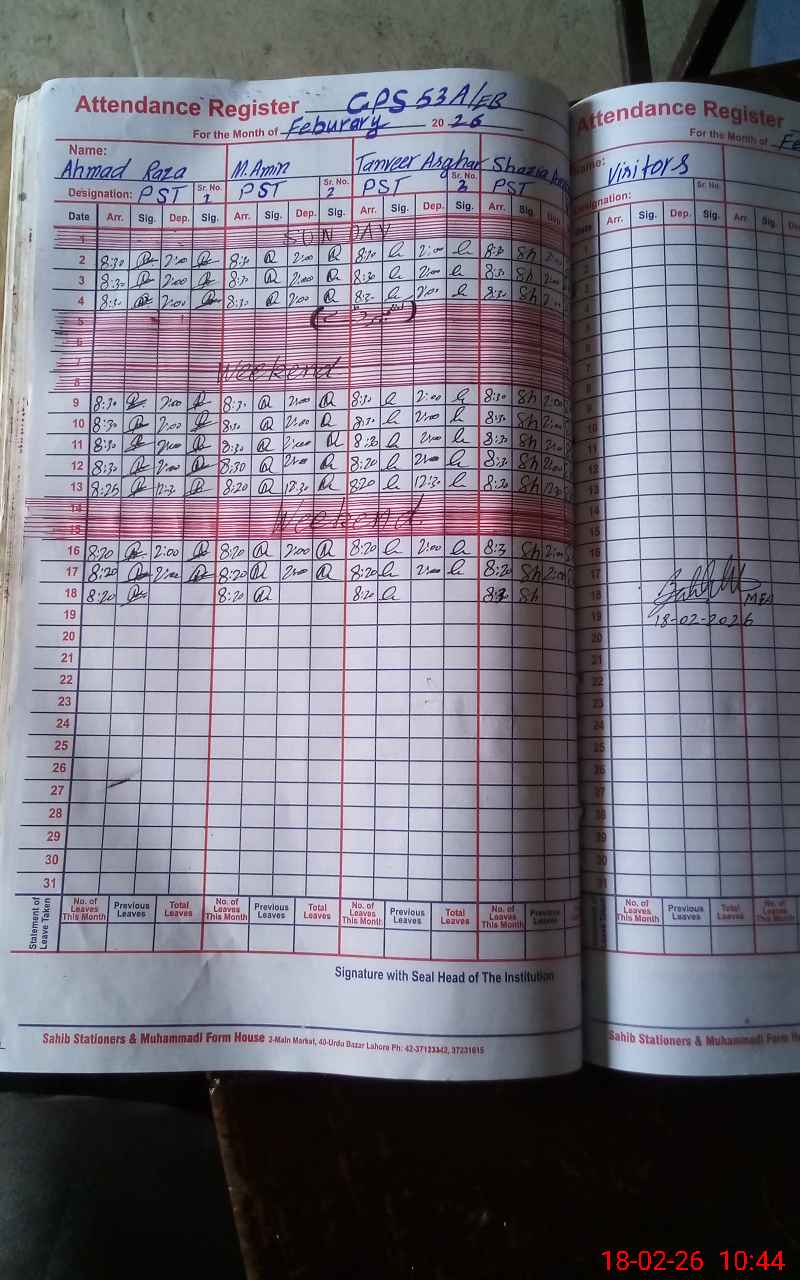 Attendance Register GPS 53A/EB
For the Month of Feburary 20 26
Name:
Ahmad Raza M.Amin Tanveer Asghar Shazia
Designation: PST Sr. No. 1 PST Sr. No. 2 PST Sr. No. 3 PST
Date Arr. Sig. Dep. Sig. Arr. Sig. Dep. Sig. Arr. Sig. Dep. Sig. Arr. Sig. Dep.
1 SUNDAY
2 8:30 2:00 8:30 2:00 8:30 2:00 8:30 Sh 2:00
3 8:30 2:00 8:30 2:00 8:30 2:00 8:30 Sh 2:00
4 8:30 2:00 8:30 2:00 8:30 2:00 8:30 Sh 2:00
5
6
7 Weekend
8
9 8:30 2:00 8:30 2:00 8:30 2:00 8:30 Sh 2:00
10 8:30 2:00 8:30 2:00 8:30 2:00 8:30 Sh 2:00
11 8:30 2:00 8:30 2:00 8:30 2:00 8:30 Sh 2:00
12 8:30 2:00 8:30 2:00 8:20 2:00 8:30 Sh 2:00
13 8:25 12:30 8:20 12:30 8:20 12:30 8:20 Sh 12:30
14 Weekend
15
16 8:20 2:00 8:20 2:00 8:20 2:00 8:3 Sh 2:00
17 8:20 2:00 8:20 2:00 8:20 2:00 8:20 Sh 2:00
18 8:20 8:20 8:20 Sh
19
20
21
22
23
24
25
26
27
28
29
30
31
Statement of Leave Taken
No. of Leaves This Month Previous Leaves Total Leaves No. of Leaves This Month Previous Leaves Total Leaves No. of Leaves This Month Previous Leaves Total Leaves No. of Leaves This Month Previous Leaves
Signature with Seal Head of The Institution
Sahib Stationers & Muhammadi Form House 2-Main Market, 40-Urdu Bazar Lahore Ph: 42-37123342, 37231615
Attendance Register
For the Month of Fe
Name:
Visitors
Designation: Sr. No.
Date Arr. Sig. Dep. Sig. Arr. Sig.
1
2
3
4
5
6
7
8
9
10
11
12
13
14
15
16
17
18 MEA
19 18-02-2026
20
21
22
23
24
25
26
27
28
29
30
31
No. of Leaves This Month Previous Leaves Total Leaves No. of Leaves This Month
Sahib Stationers & Muhammadi Form H
18-02-26 10:44